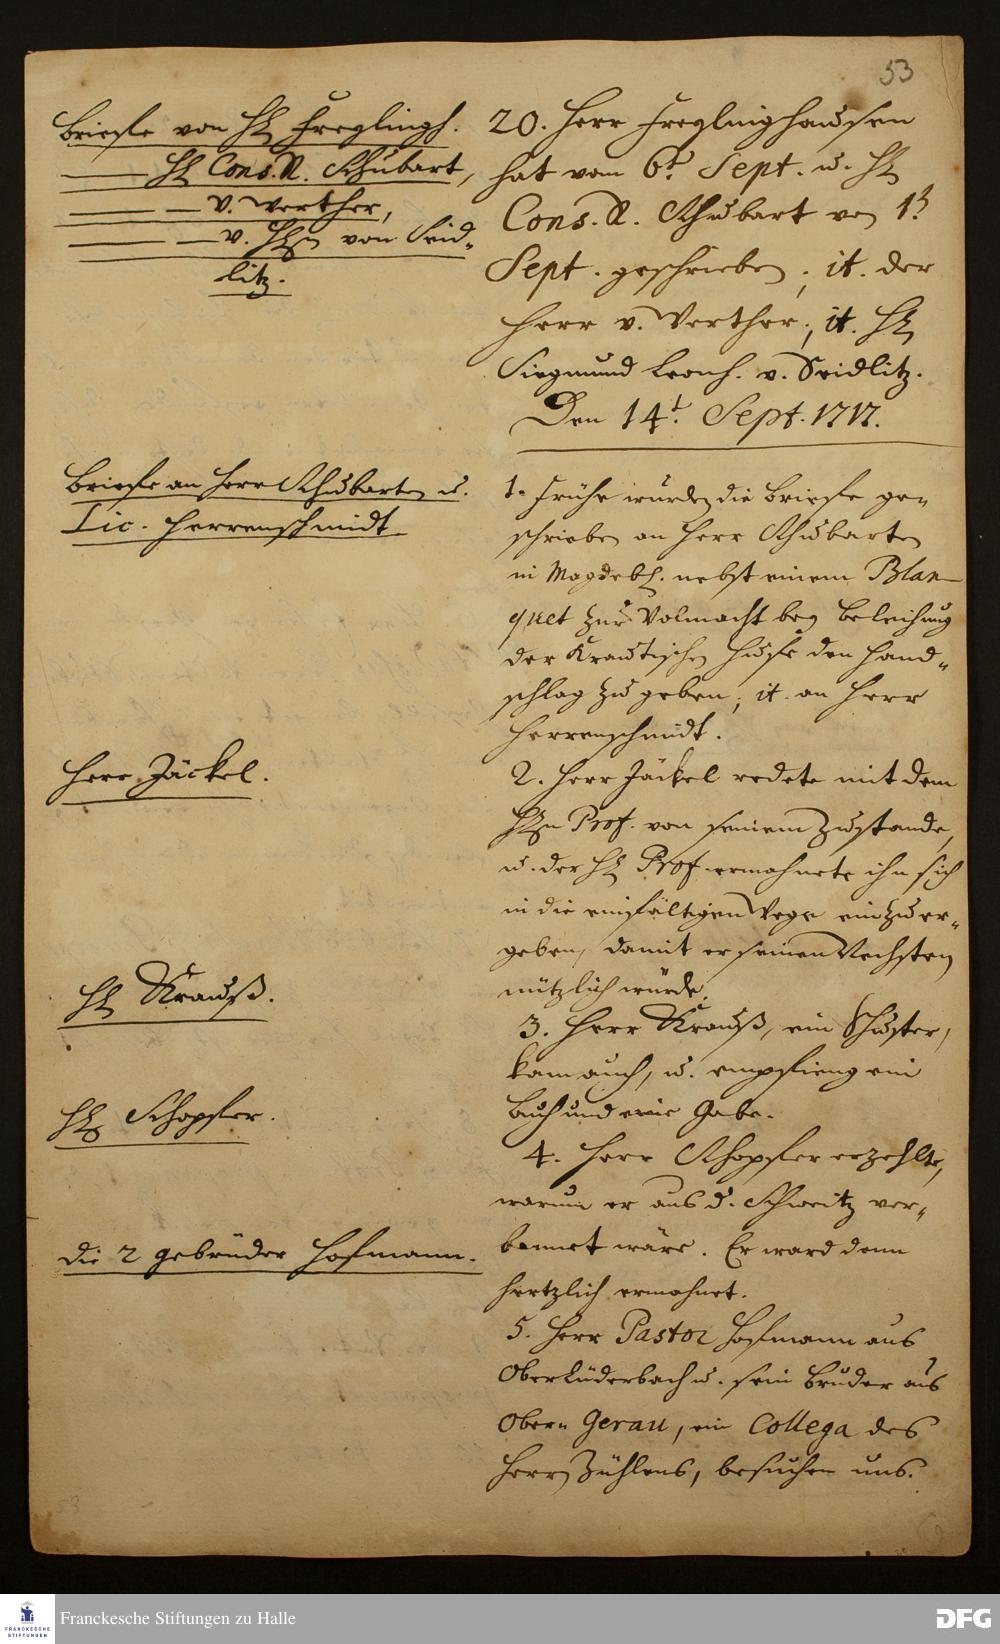 53
Briefe von HE Freylingh.
—— HE Cons. R. Schubart,
—— — v. Werther,
—— — v. HEn von Seid-
litz.
20. Herr Freylinghausen
hat vom 6t. Sept. u. HE
Cons. R. Schubart von 13
Sept. geschrieben; it. der
Herr v. Werther; it. HE
Siegmund Leonh. v. Seidlitz.
Den 14t. Sept. 1717.
Briefe an Herr Schubarten u.
Lic. Herrenschmidt
1. Frühe wurden die Briefe ge-
schrieben an Herr Schubarten
in Magdeb. nebst einem Blan-
quet zur Volmacht bey Beleihung
der Krautischen Hufe den Hand-
schlag zu geben; it. an Herr
Herrenschmidt.
Herr Jäckel.
2. Herr Jäckel redete mit dem
HEn Prof. von seinem Zustande,
u. der HE Prof. ermahnete ihn sich
in die einfältigen Wege ein zu er-
geben, damit er seinen Nechsten
nützlich würde.
HE Krauß.
3. Herr Krauß, ein Schuster,
kam auch, u. empfieng ein
Buch und eine Gabe.
HE Schopfer.
4. Herr Schopfer erzehlte,
warum er aus d. Schweitz ver-
bannet wäre. Er ward denn
hertzlich ermahnet.
die 2 gebrüder Hofmann.
5. Herr Pastor Hofmann aus
Oberlüderbach u. sein Bruder aus
Obern Gerau, ein Collega des
Herrn Zühlens, besuchen uns.
53
Franckesche Stiftungen zu Halle
FRANCKESCHE
STIFTUNGEN
DFG